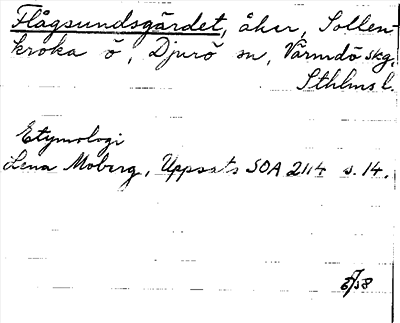 Flågsundsgärdet, åker, Sollen-
kroka ö, Djurö sn, Värmdö skg,
Sthlms l.
Etymologi
Lena Moberg, Uppsats SOA 2114 s. 14.